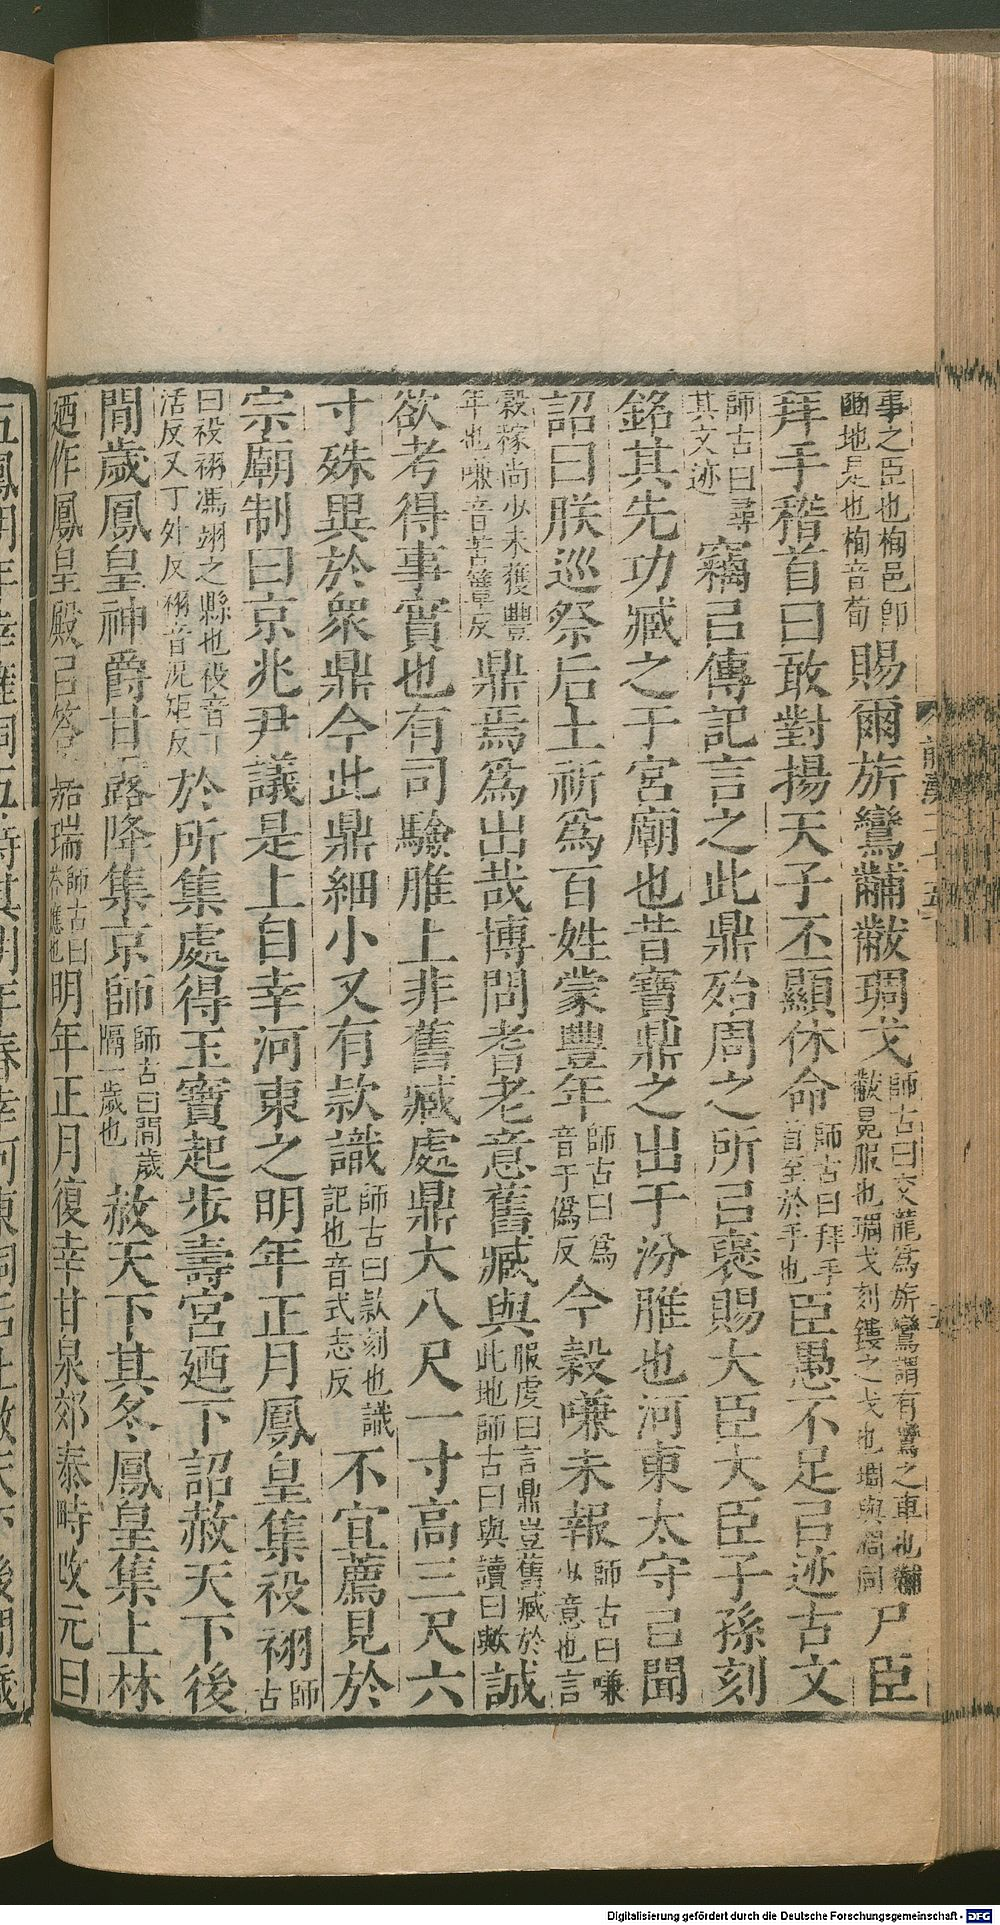 事之臣也栒邑即豳地是也栒音荀賜爾旂鸞黼黻琱戈師古曰交龍爲旂鸞謂有鸞之車也黼黻冕服也琱戈刻鏤之戈也琱與彫同尸臣
拜手稽首曰敢對揚天子丕顯休命師古曰拜手首至於手也臣愚不足㠯迹古文
師古曰尋其文迹竊㠯傳記言之此鼎殆周之所㠯襃賜大臣大臣子孫刻
銘其先功臧之于宮廟也昔寶鼎之出于汾脽也河東太守㠯聞
詔曰朕巡祭后土祈爲百姓蒙豐年師古曰爲音于僞反今穀嗛未報師古曰嗛少意也言
穀稼尚少未獲豐年也嗛音苦簟反鼎焉爲出哉博問耆老意舊臧與服虔曰言鼎豈舊臧於此地師古曰與讀曰歟誠
欲考得事實也有司驗脽上非舊臧處鼎大八尺一寸高三尺六
寸殊異於衆鼎今此鼎細小又有款識師古曰款刻也識記也音式志反不宜薦見於
宗廟制曰京兆尹議是上自幸河東之明年正月鳳皇集祋祤師古
曰祋祤馮翊之縣也祋音丁活反又丁外反祤音況矩反於所集處得玉寶起步壽宮廼下詔赦天下後
閒歲鳳皇神爵甘露降集京師師古曰閒歲隔一歲也赦天下其冬鳳皇集上林
廼作鳳皇殿㠯答嘉瑞師古曰答應也明年正月復幸甘泉郊泰畤改元曰
五鳳明年幸雍祠五畤其明年春幸河東祠后土赦天下後閒歲
前漢二十五
Digitalisierung gefördert durch die Deutsche Forschungsgemeinschaft - DFG